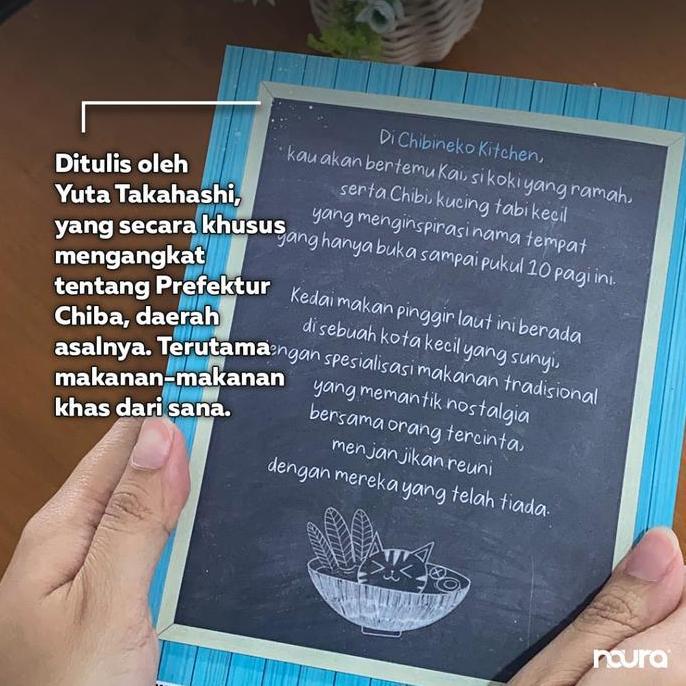 Ditulis oleh
Yuta Takahashi,
yang secara khusus
mengangkat
tentang Prefektur
Chiba, daerah
asalnya. Terutama
makanan-makanan
khas dari sana.
Di Chibineko Kitchen,
kau akan bertemu Kai, si koki yang ramah,
serta Chibi, kucing tabi kecil
yang menginspirasi nama tempat
yang hanya buka sampai pukul 10 pagi ini.
Kedai makan pinggir laut ini berada
di sebuah kota kecil yang sunyi,
dengan spesialisasi makanan tradisional
yang memantik nostalgia
bersama orang tercinta,
menjanjikan reuni
dengan mereka yang telah tiada.
noura